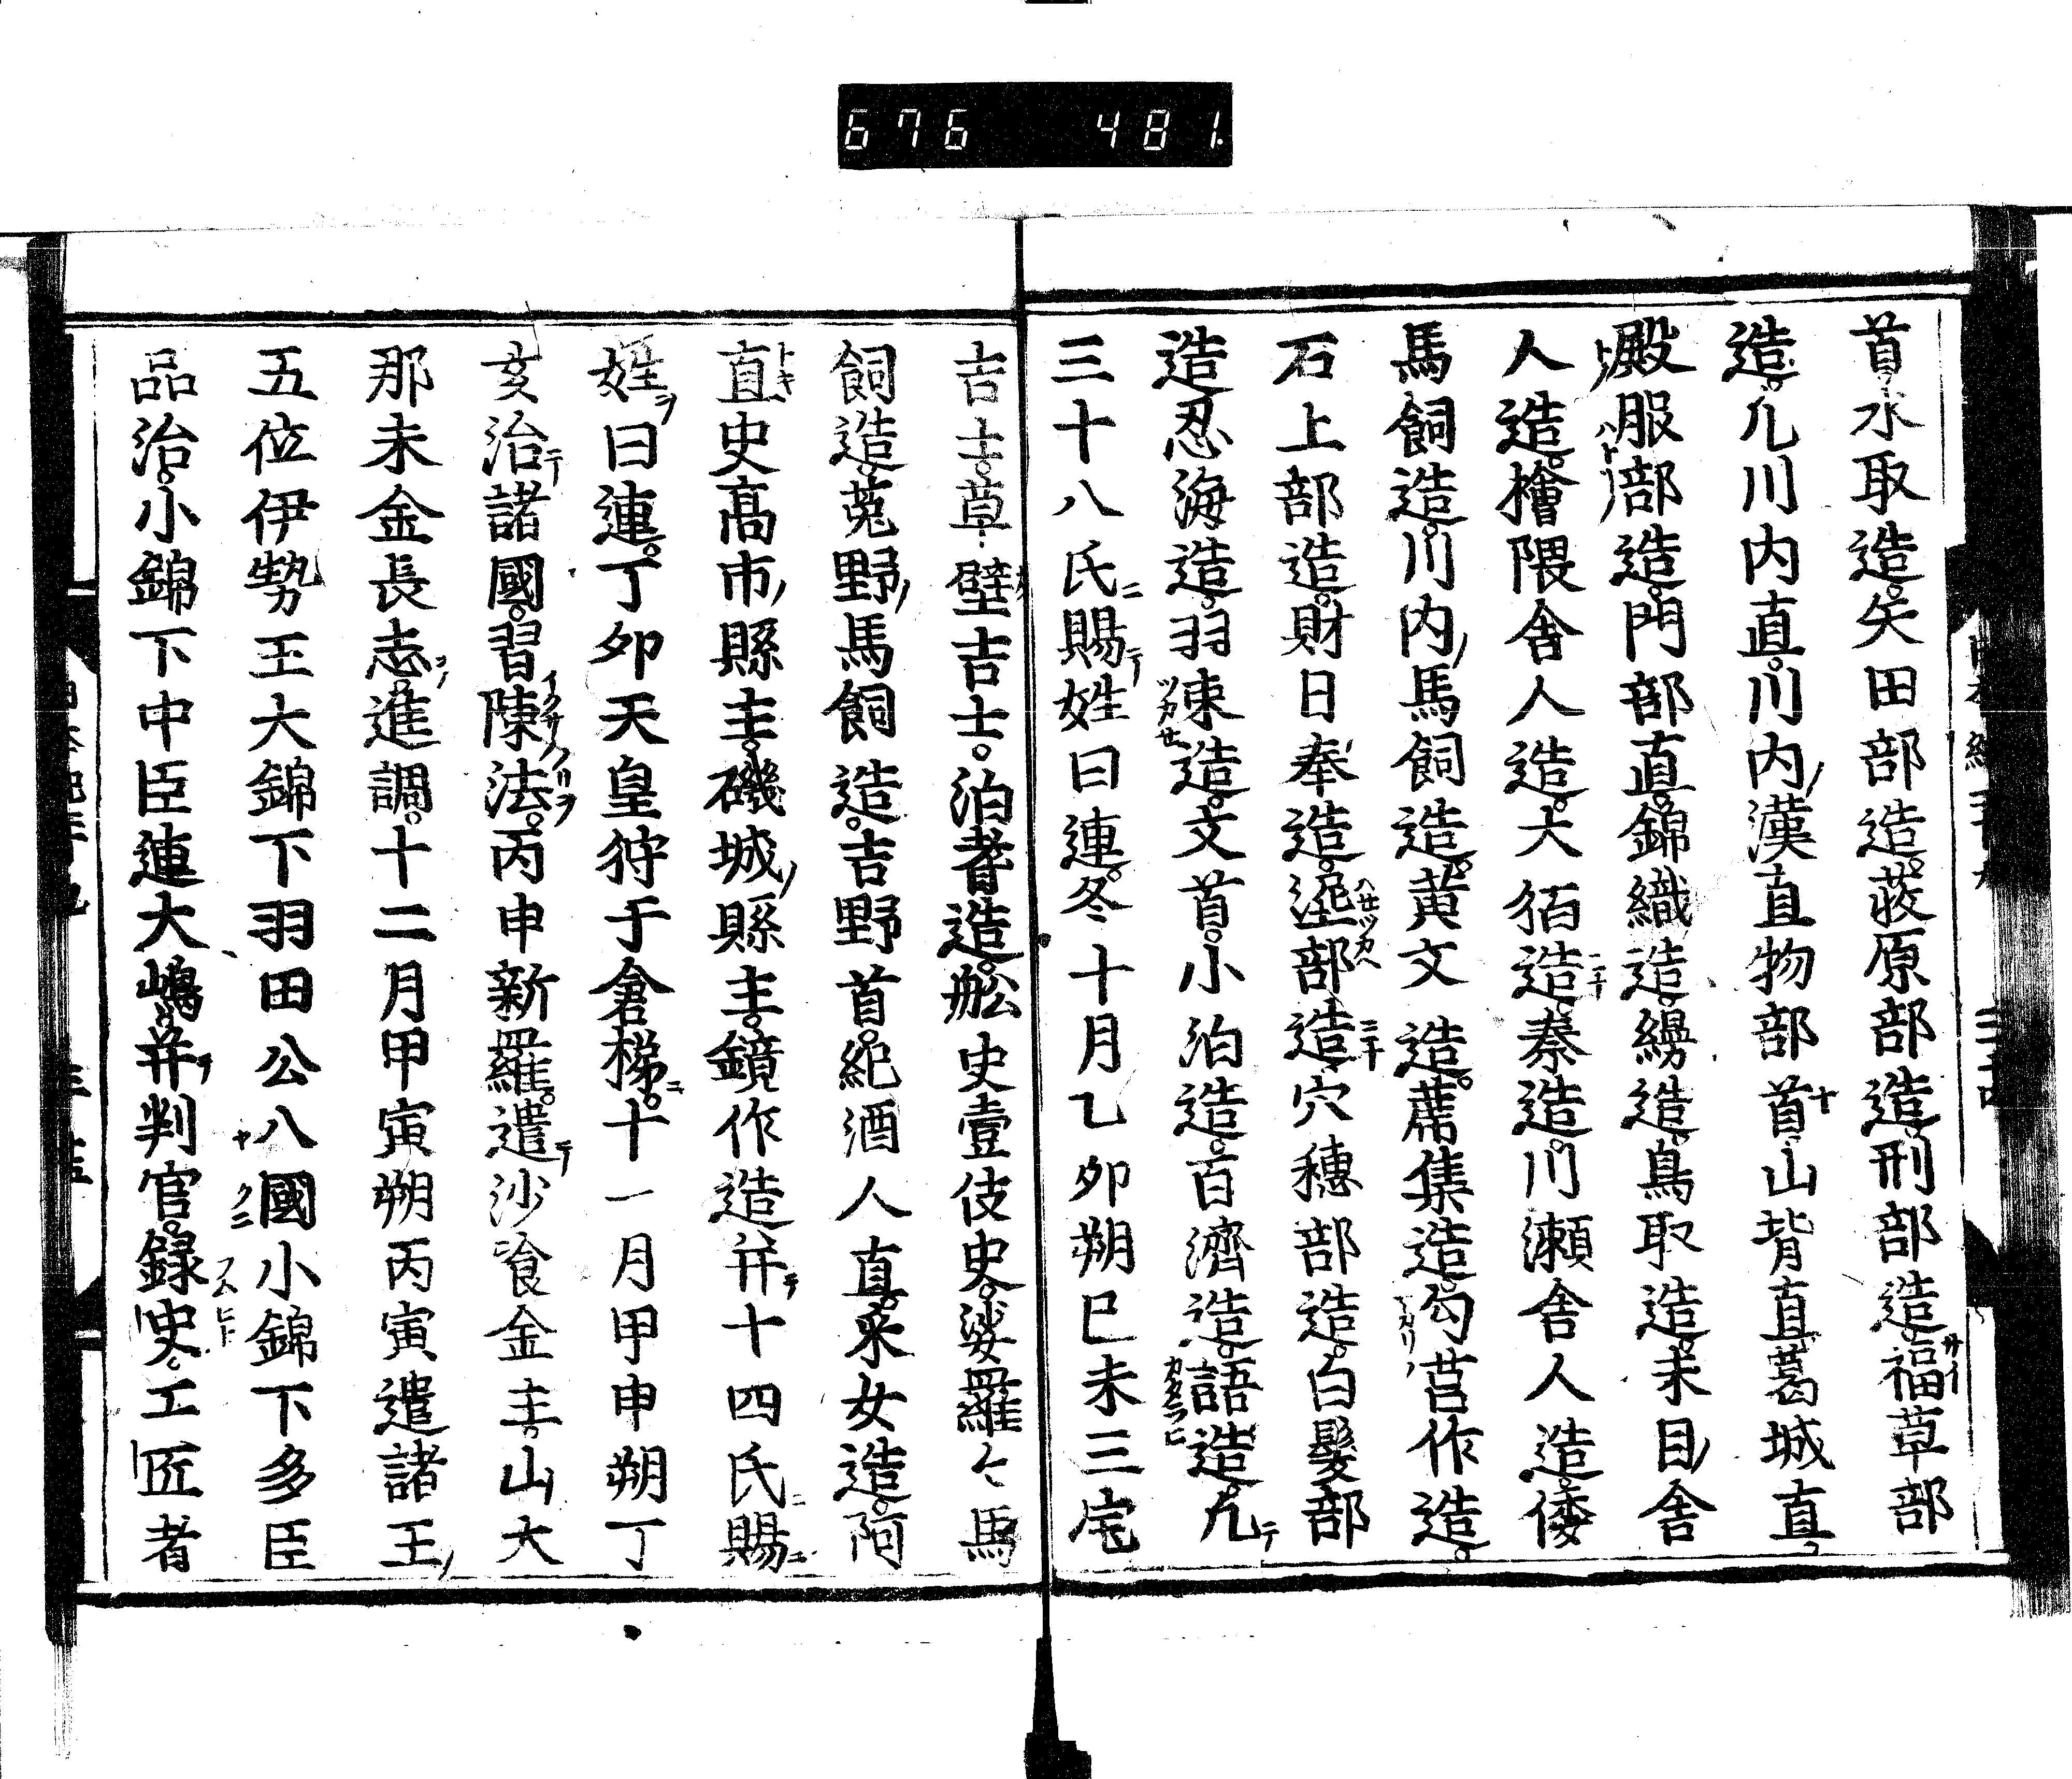 676 481
首。水取造。矢田部造。菝原部造。刑部造。福草部
造。凡川内直。川内漢直物部首。山背直。葛城直。
殿服部造。門部直。錦織造。縵造。鳥取造。来目舎
人造。檜隈舎人造。大狛造。秦造。川瀬舎人造。倭
馬飼造。川内馬飼造。黄文造。蓆集造。勾莒作造。
石上部造。財日奉造。埿部造。穴穂部造。白髮部
造。忍海造。羽束造。文首。小泊造。百濟造。語造。凡
三十八氏賜姓曰連。冬十月乙卯朔巳未三宅
吉士。草壁吉士。泊耆造。舩史壹伎史。娑羅々馬
飼造。菟野馬飼造。吉野首。紀酒人直。釆女造。阿
直史高市縣主。磯城縣主。鏡作造并十四氏賜
姓曰連。丁卯天皇狩于倉梯。十一月甲申朔丁
亥治諸國。習陳法。丙申新羅。遣沙飡金主山大
那未金長志進調。十二月甲寅朔丙寅遣諸王
五位伊勢王大錦下羽田公八國小錦下多臣
品治。小錦下中臣連大嶋。并判官。録史。工匠者